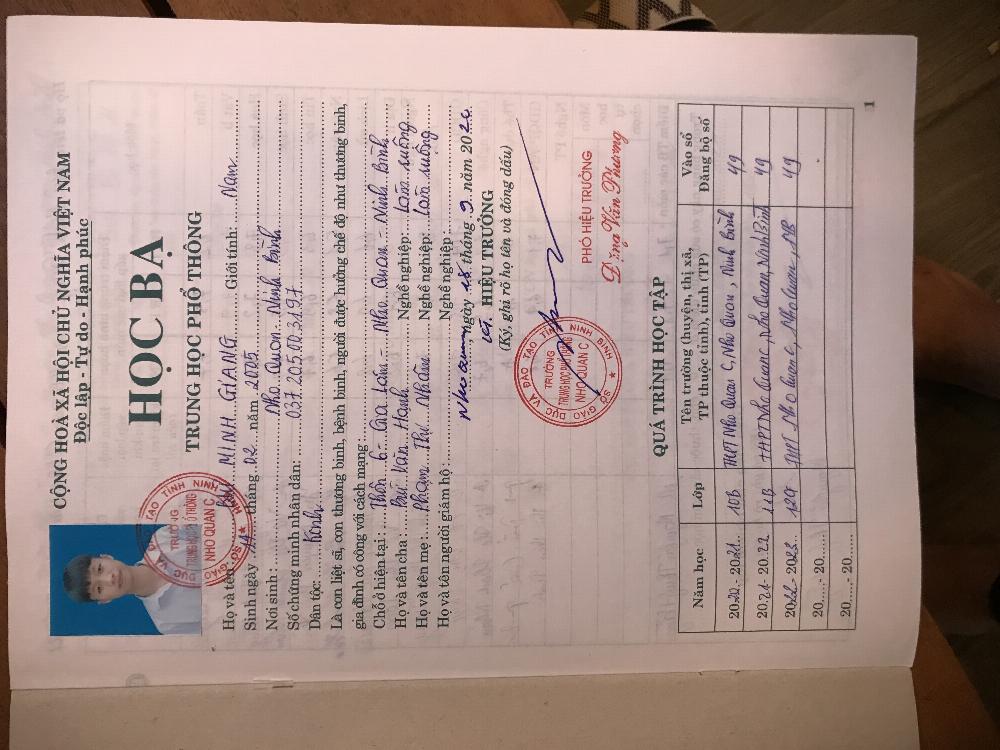 CỘNG HOÀ XÃ HỘI CHỦ NGHĨA VIỆT NAM
Độc lập - Tự do - Hạnh phúc
HỌC BẠ
TRUNG HỌC PHỔ THÔNG
Họ và tên: BÙI MINH GIANG Giới tính: Nam
Sinh ngày 11 tháng 02 năm 2005
Nơi sinh: Nho Quan - Ninh Bình
Số chứng minh nhân dân: 037.205.003197
Dân tộc: Kinh
Là con liệt sĩ, con thương binh, bệnh binh, người được hưởng chế độ như thương binh,
gia đình có công với cách mạng:
Chỗ ở hiện tại: Thôn 6 - Gia Lâm - Nho Quan - Ninh Bình
Họ và tên cha: Bùi Văn Hạnh Nghề nghiệp: Làm ruộng
Họ và tên mẹ: Phạm Thị Nhâm Nghề nghiệp: Làm ruộng
Họ và tên người giám hộ: Nghề nghiệp:
Nho Quan, ngày 18 tháng 9 năm 2020
KT. HIỆU TRƯỞNG
(Ký, ghi rõ họ tên và đóng dấu)
SỞ GIÁO DỤC VÀ ĐÀO TẠO TỈNH NINH BÌNH
TRƯỜNG
TRUNG HỌC PHỔ THÔNG
NHO QUAN C
PHÓ HIỆU TRƯỞNG
Đặng Văn Phương
QUÁ TRÌNH HỌC TẬP
Năm học Lớp Tên trường (huyện, thị xã, TP thuộc tỉnh), tỉnh (TP) Vào sổ Đăng bộ số
2020 - 2021 10B THPT Nho Quan C, Nho Quan, Ninh Bình 49
2021 - 2022 11B THPT Nho Quan C, Nho Quan, Ninh Bình 49
2022 - 2023 12G THPT Nho Quan C, Nho Quan, NB 49
20...... - 20......
20...... - 20......
1